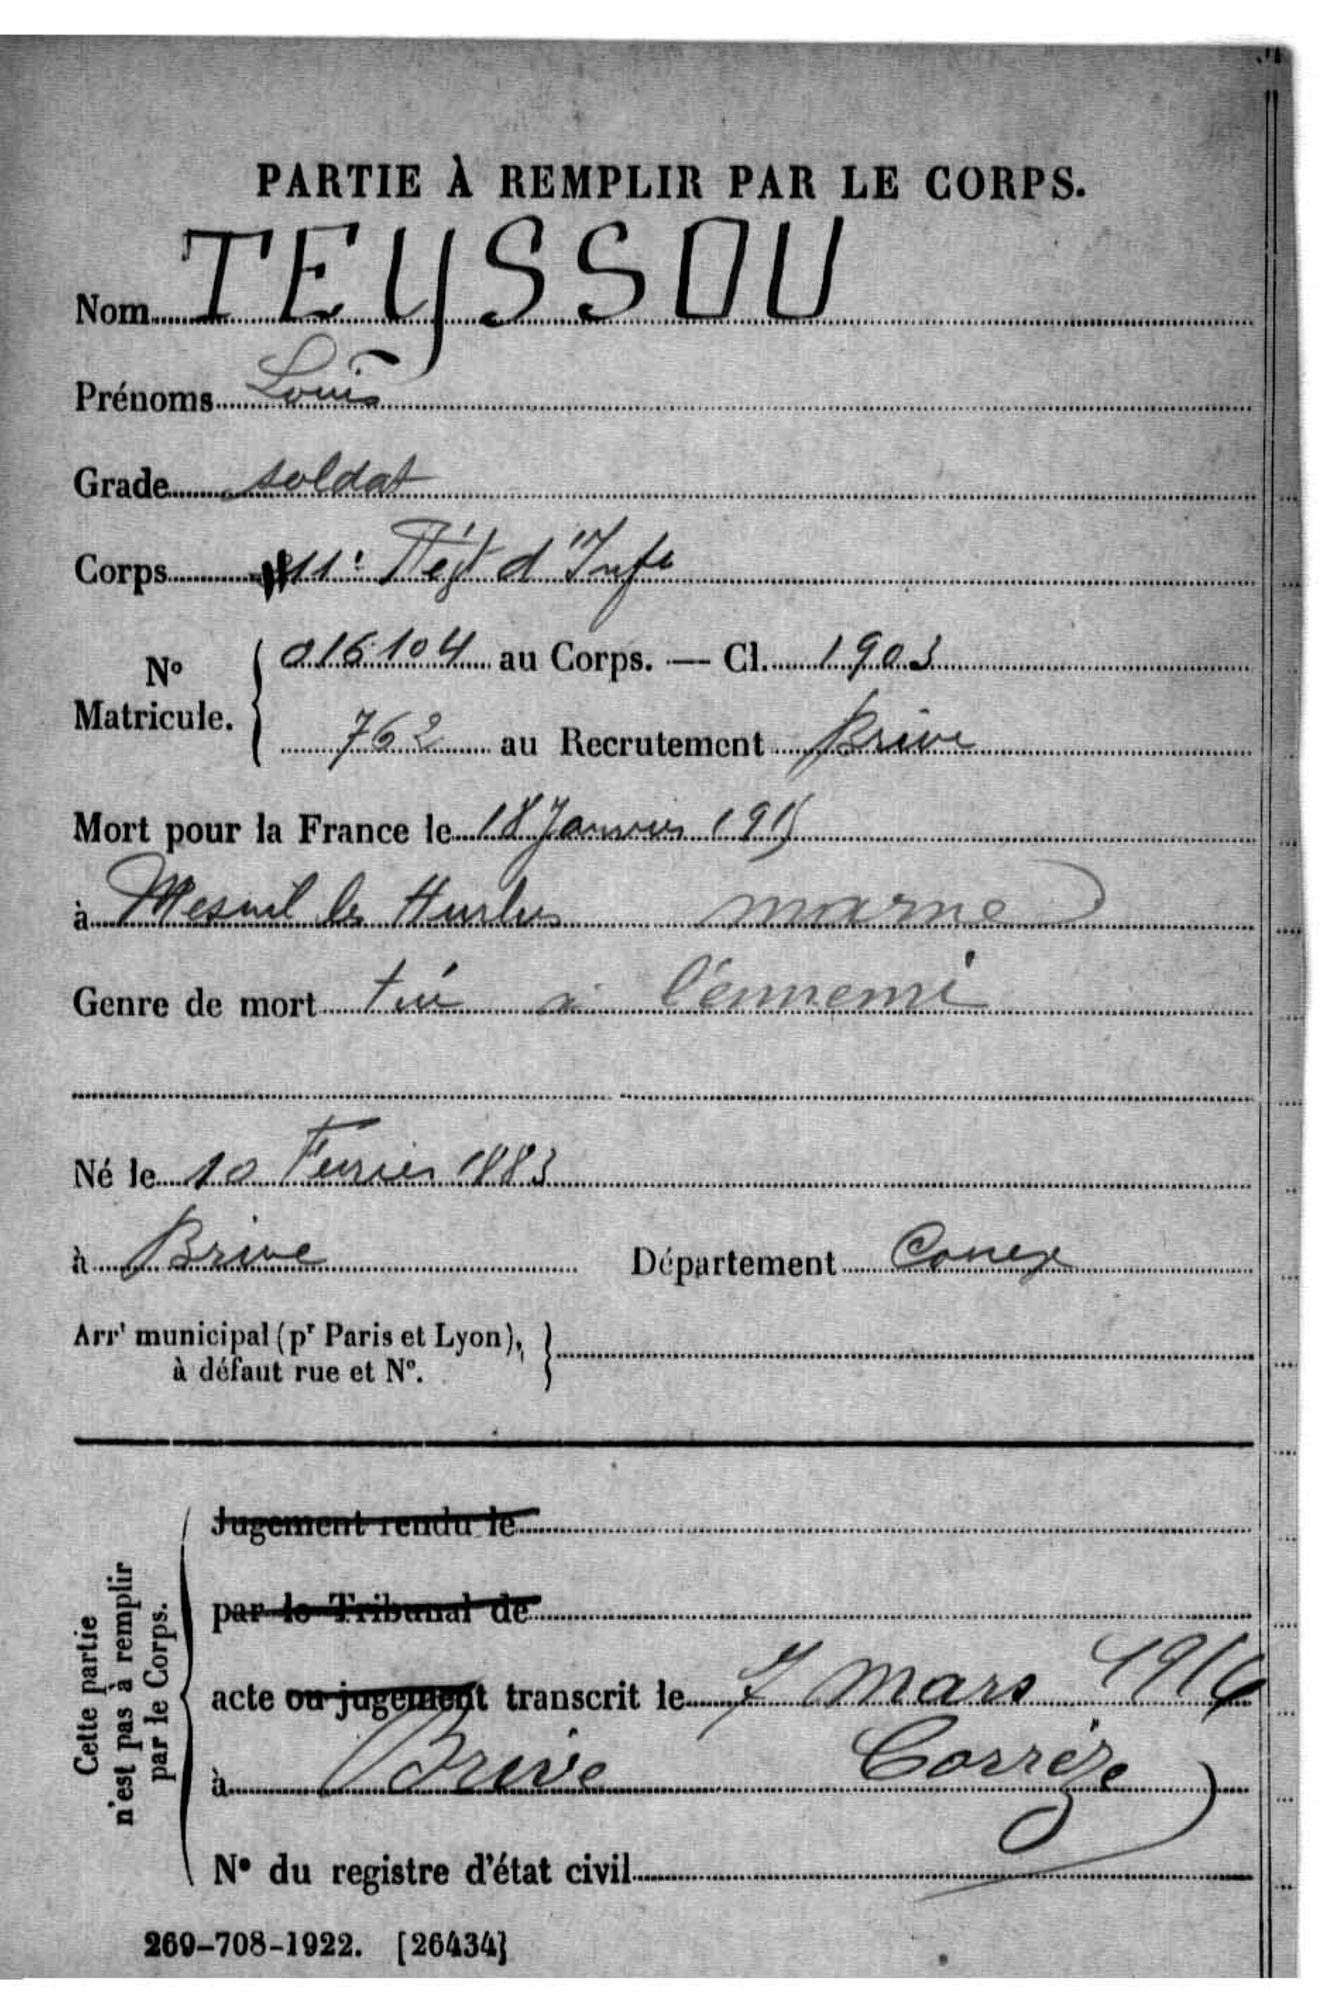 PARTIE À REMPLIR PAR LE CORPS.
Nom TEYSSOU
Prénoms Louis
Grade soldat
Corps 11e Régt d'Infie
N° Matricule. 016104 au Corps. — Cl. 1903
762 au Recrutement Brive
Mort pour la France le 18 Janvier 1915
à Mesnil les Hurlus marne
Genre de mort tué à l'énnemi
Né le 10 Fevrier 1883
à Brive Département Correze
Arrt municipal (pr Paris et Lyon), à défaut rue et N°.
Cette partie n'est pas à remplir par le Corps.
Jugement rendu le
par le Tribunal de
acte ou jugement transcrit le 7 mars 1916
à Brive Corrèze
N° du registre d'état civil
269-708-1922. [26434]